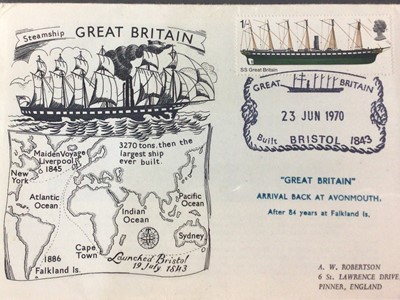 Steamship GREAT BRITAIN
3270 tons, then the
largest ship
ever built.
Maiden Voyage
Liverpool
1845
New
York
Atlantic
Ocean
Pacific
Ocean
Indian
Ocean
Sydney
Cape
Town
1886
Falkland Is.
Launched Bristol
19 July 1843
1/-
SS Great Britain
GREAT BRITAIN
23 JUN 1970
Built BRISTOL 1843
"GREAT BRITAIN"
ARRIVAL BACK AT AVONMOUTH.
After 84 years at Falkland Is.
A. W. ROBERTSON
6 St. LAWRENCE DRIVE
PINNER, ENGLAND